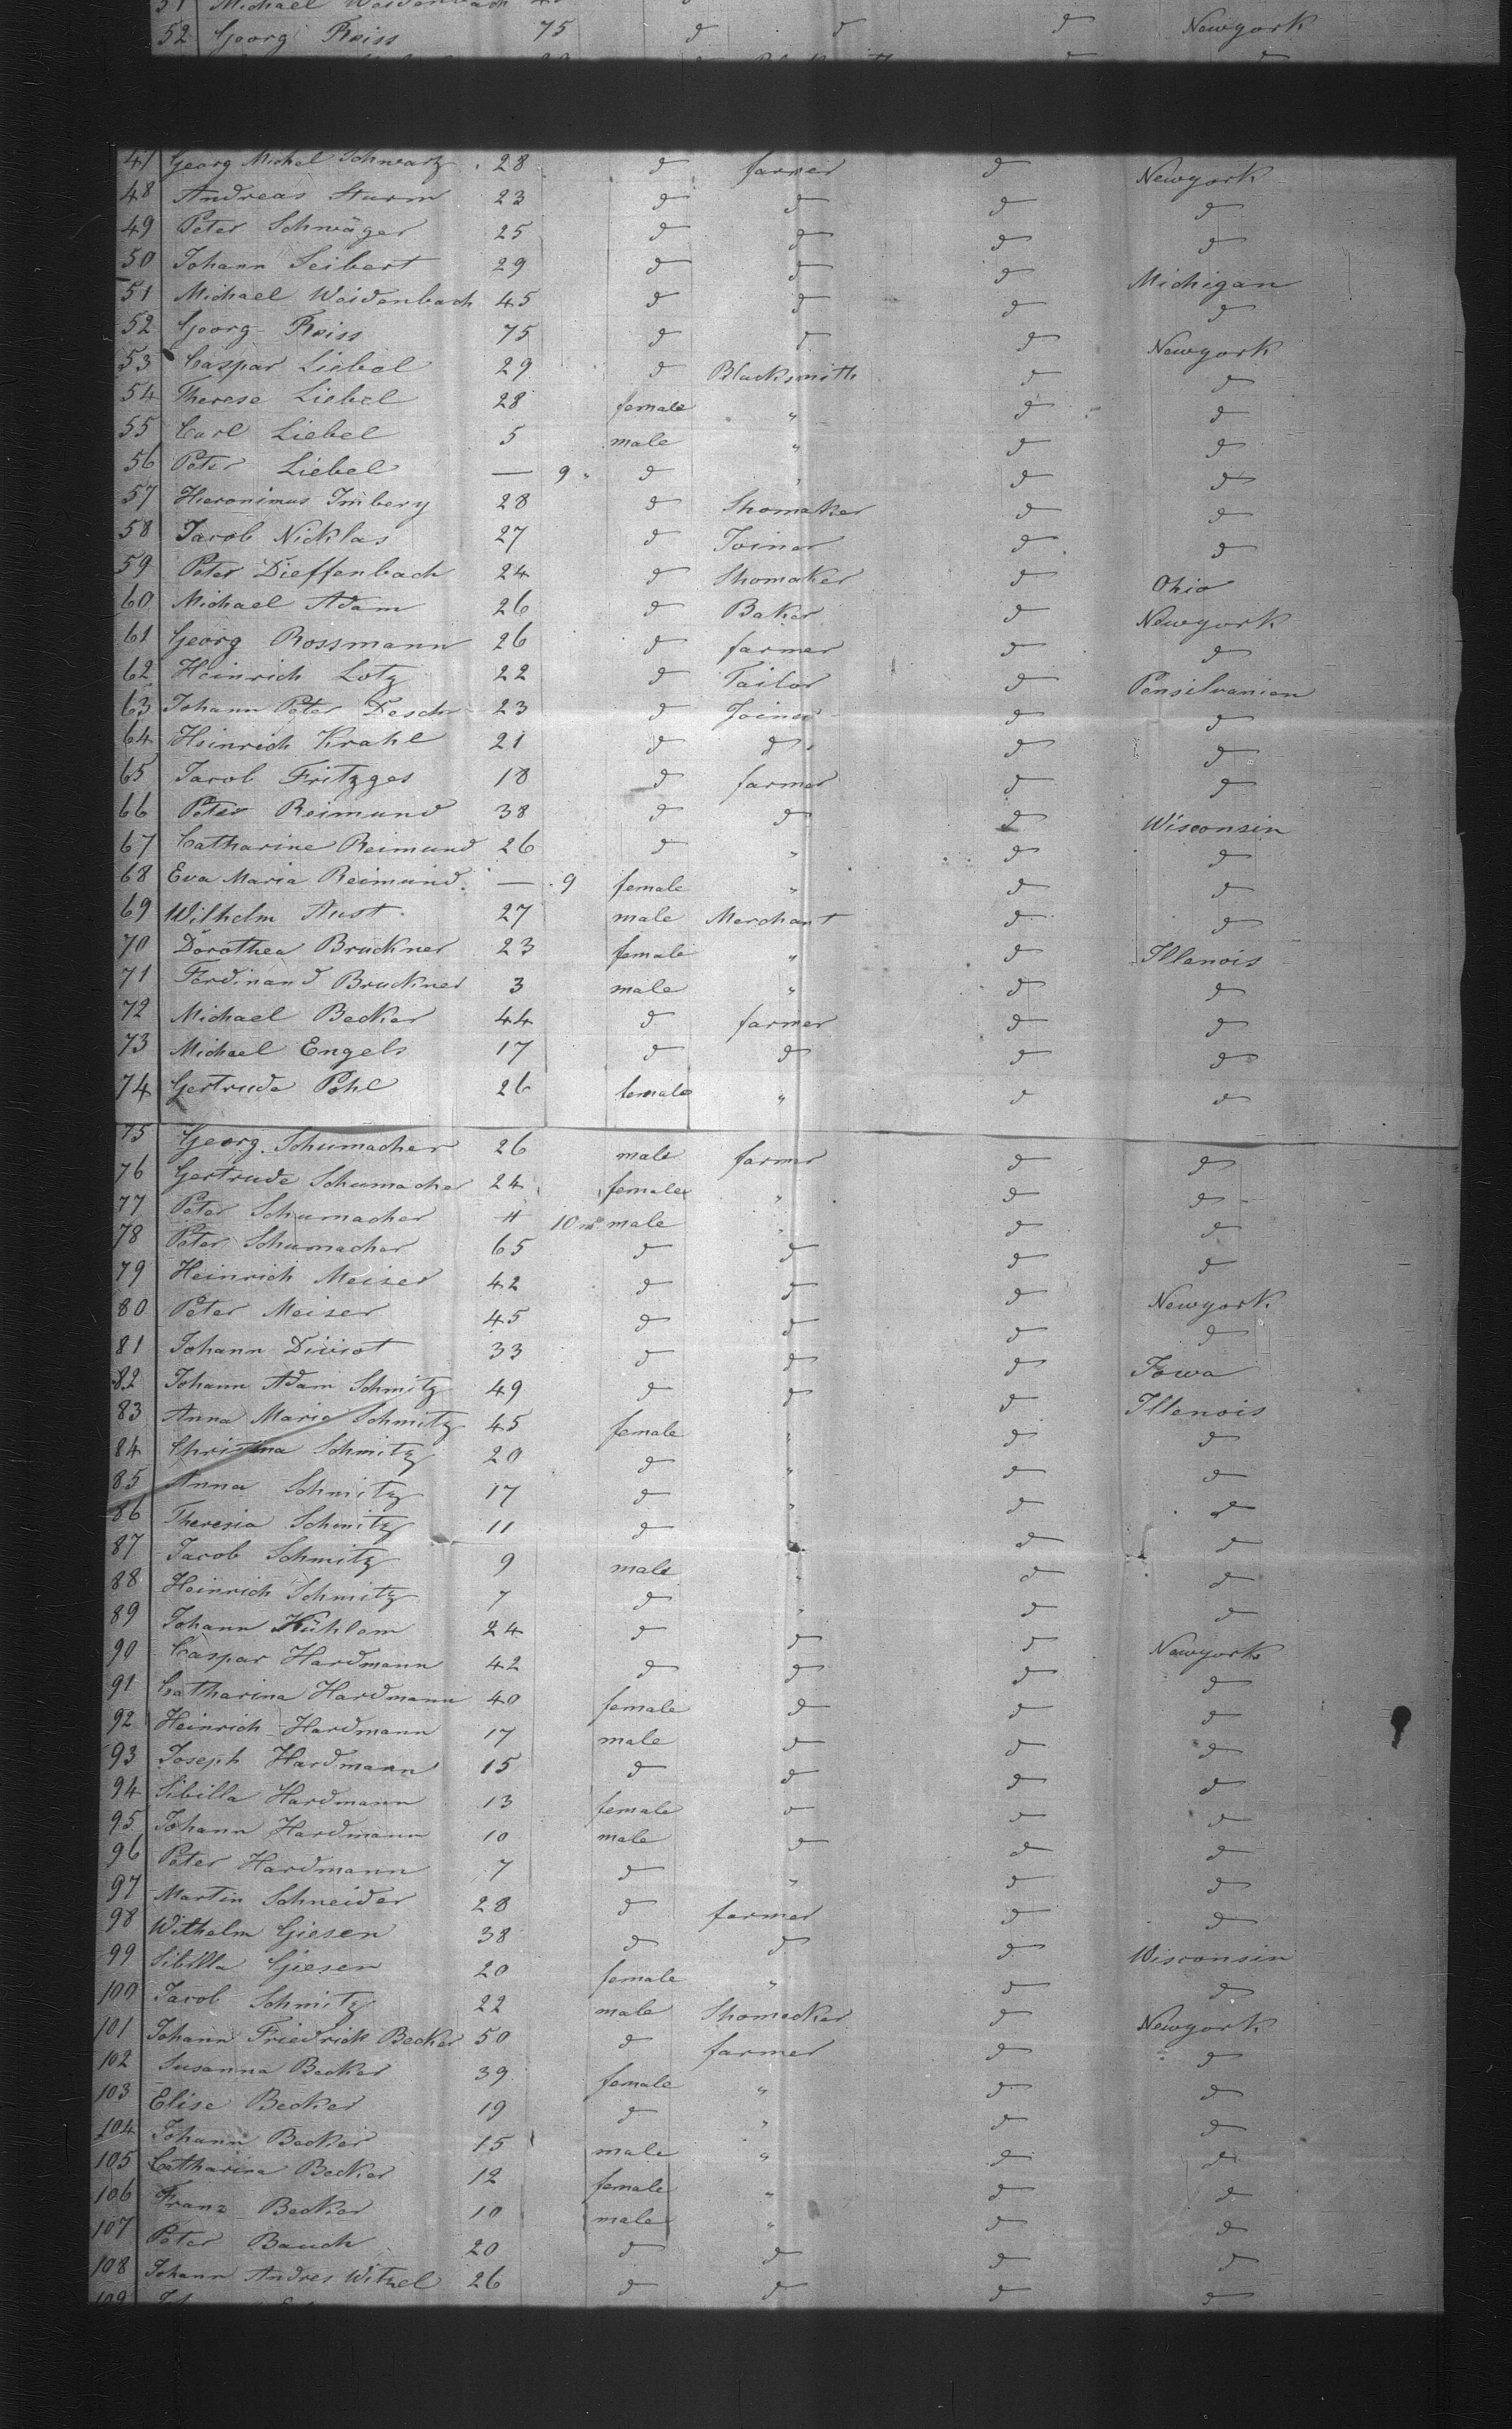 51 Michael Weidenbach
52 Georg Reiss 75 d d d Newyork
47 Georg Michel Schwartz 28 d farmer d Newyork
48 Andreas Sturm 23 d d d d
49 Peter Schwäger 25 d d d d
50 Johann Seibert 29 d d d Michigan
51 Michael Weidenbach 45 d d d d
52 Georg Reiss 75 d d d Newyork
53 Caspar Liebel 29 d Blacksmith d d
54 Therese Liebel 28 female " d d
55 Carl Liebel 5 male " d d
56 Peter Liebel — 9 " d " d d
57 Hieronimus Imbery 28 d Shomaker d d
58 Jacob Nicklas 27 d Joiner d d
59 Peter Dieffenbach 24 d Shomaker d Ohio
60 Michael Adam 26 d Baker d Newyork
61 Georg Rossmann 26 d farmer d d
62 Heinrich Lotz 22 d Tailor d Pensilvanien
63 Johann Peter Desch 23 d Joiner d d
64 Heinrich Krahl 21 d d d d
65 Jacob Fritzges 18 d farmer d d
66 Peter Reimund 38 d d d Wisconsin
67 Catharine Reimund 26 d " d d
68 Eva Maria Reimund — 9 female " d d
69 Wilhelm Aust 27 male Merchant d d
70 Dorothea Bruckner 23 female " d Illenois
71 Ferdinand Bruckner 3 male " d d
72 Michael Becker 44 d farmer d d
73 Michael Engels 17 d d d d
74 Gertrude Pohl 26 female " d d
75 Georg Schumacher 26 male farmer d d
76 Gertrude Schumacher 24 female " d d
77 Peter Schumacher " 10 m male " d d
78 Peter Schumacher 65 d d d d
79 Heinrich Meiser 42 d d d Newyork
80 Peter Meiser 45 d d d d
81 Johann Diviot 33 d d d Iowa
82 Johann Adam Schmitz 49 d d d Illenois
83 Anna Maria Schmitz 45 female " d d
84 Christina Schmitz 20 d " d d
85 Anna Schmitz 17 d " d d
86 Theresia Schmitz 11 d " d d
87 Jacob Schmitz 9 male " d d
88 Heinrich Schmitz 7 d " d d
89 Johann Kühlem 24 d d d Newyork
90 Caspar Hardmann 42 d d d d
91 Catharina Hardmann 40 female d d d
92 Heinrich Hardmann 17 male d d d
93 Joseph Hardmann 15 d d d d
94 Sibilla Hardmann 13 female d d d
95 Johann Hardmann 10 male d d d
96 Peter Hardmann 7 d " d d
97 Martin Schneider 28 d farmer d d
98 Wilhelm Giesen 38 d d d Wisconsin
99 Sibilla Giesen 20 female " d d
100 Jacob Schmitz 22 male Shomacker d Newyork
101 Johann Friedrich Becker 50 d farmer d d
102 Susanna Becker 39 female " d d
103 Elise Becker 19 d " d d
104 Johann Becker 15 male " d d
105 Catharina Becker 12 female " d d
106 Franz Becker 10 male " d d
107 Peter Bauch 20 d d d d
108 Johann Andres Witzel 26 d d d d
109